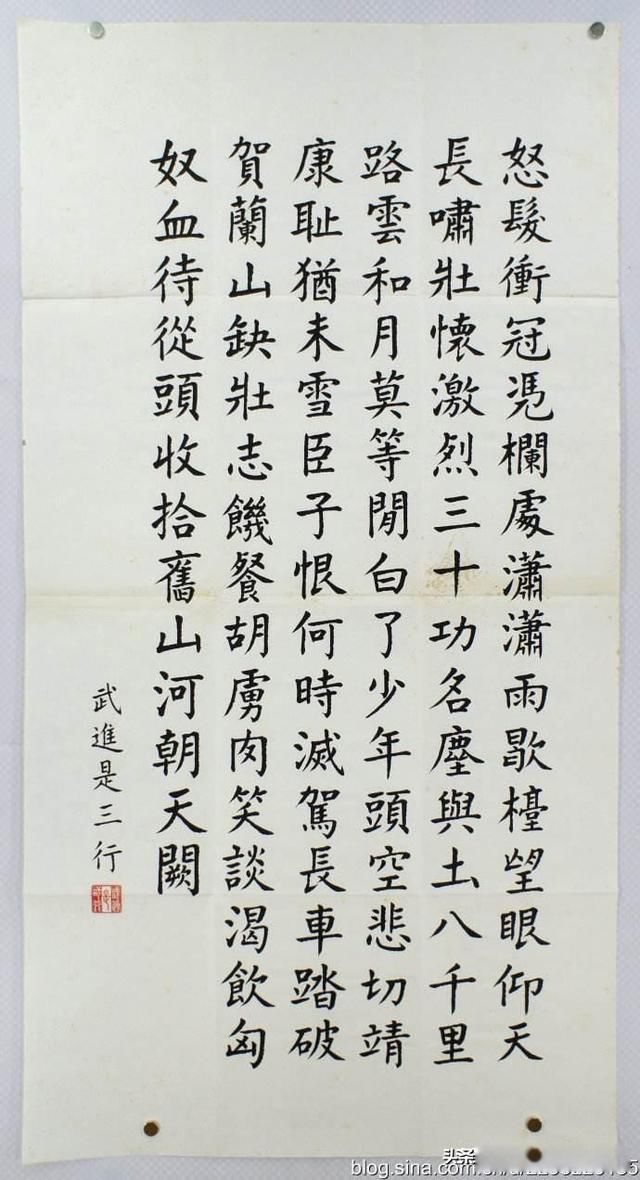 怒髮衝冠凴欄處瀟瀟雨歇檯望眼仰天
長嘯壯懷激烈三十功名塵與土八千里
路雲和月莫等閒白了少年頭空悲切靖
康耻猶未雪臣子恨何時滅駕長車踏破
賀蘭山缺壯志饑餐胡虜肉笑談渴飲匈
奴血待從頭收拾舊山河朝天闕
武進是三行
blog.sina.com.cn